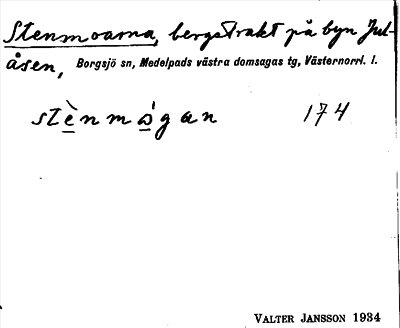 Stenmoarna, bergstrakt på byn Jul-
åsen, Borgsjö sn, Medelpads västra domsagas tg, Västernorrl. l.
stènmo̱gan 174
VALTER JANSSON 1934